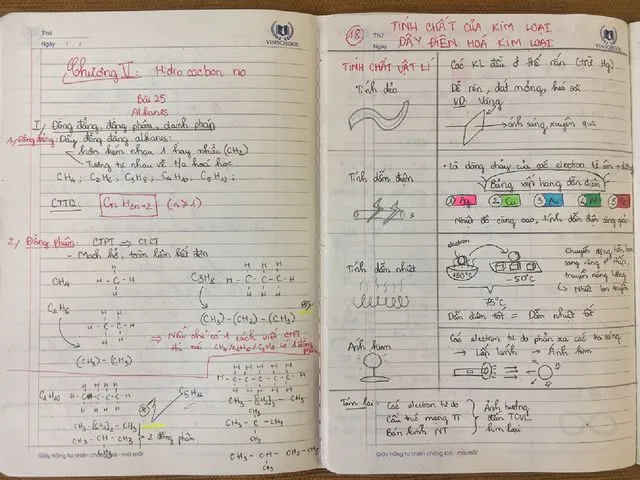 Thứ
Ngày / /
VINSCHOOL
Chương V: Hiđro cacbon no
Bài 25
Alkanes
I, Đồng đẳng, đồng phân, danh pháp
1, Đồng đẳng: Dãy đồng đẳng alkanes:
hơn kém nhau 1 hay nhiều (CH2)
Tương tự nhau về t/c hoá học
CH4, C2H6, C3H8, C4H10, C5H12,
CTTQ: CnH2n+2 (n≥1)
2, Đồng phân: CTPT ⇒ CTCT
- Mạch hở, toàn liên kết đơn
CH4
H
H - C - H
H
C3H8
H H H
H - C - C - C - H
H H H
(CH3) - (CH2) - (CH3)
C2H6
H H
H - C - C - H
H H
(CH3) - (CH3)
⇒ Nếu chỉ có 1 cách viết CTCT
thì nói CH4/C2H6/C3H8 có 1 đồng phân
C4H10
C5H12
CH3 - [CH2]2 - CH3
CH3 - CH - CH3
CH3
2 đồng phân
CH3 - [CH2]3 - CH3
CH3
CH3 - C - CH3
CH3
CH3 - CH - CH2 - CH3
CH3
Giấy trắng tự nhiên chống loá - mỏi mắt
Thứ
Ngày
VINSCHOOL
18
TÍNH CHẤT CỦA KIM LOẠI
DÃY ĐIỆN HOÁ KIM LOẠI
TÍNH CHẤT VẬT LÍ
Các KL đều ở thể rắn (trừ Hg)
Tính dẻo
Dễ rèn, dát mỏng, kéo sợi
VD: Vàng
ánh sáng xuyên qua
Tính dẫn điện
Là dòng chảy của các electron tự do
Bảng xếp hạng dẫn điện
1 Ag 2 Cu 3 Au 4 Al 5 Fe
Nhiệt độ càng cao, tính dẫn điện càng giảm
Tính dẫn nhiệt
electron
150°C
- 50°C
75°C
Chuyển động hỗn loạn
truyền năng lượng
Nhiệt lan truyền
Dẫn điện tốt = Dẫn nhiệt tốt
Ánh kim
Các electron tự do phản xạ các tia sáng
→ Lấp lánh → Ánh kim
Tóm lại:
Các electron tự do
Cấu trúc mạng TT
Bán kính NT
Ảnh hưởng
đến TCVL
kim loại
Giấy trắng tự nhiên chống loá - mỏi mắt